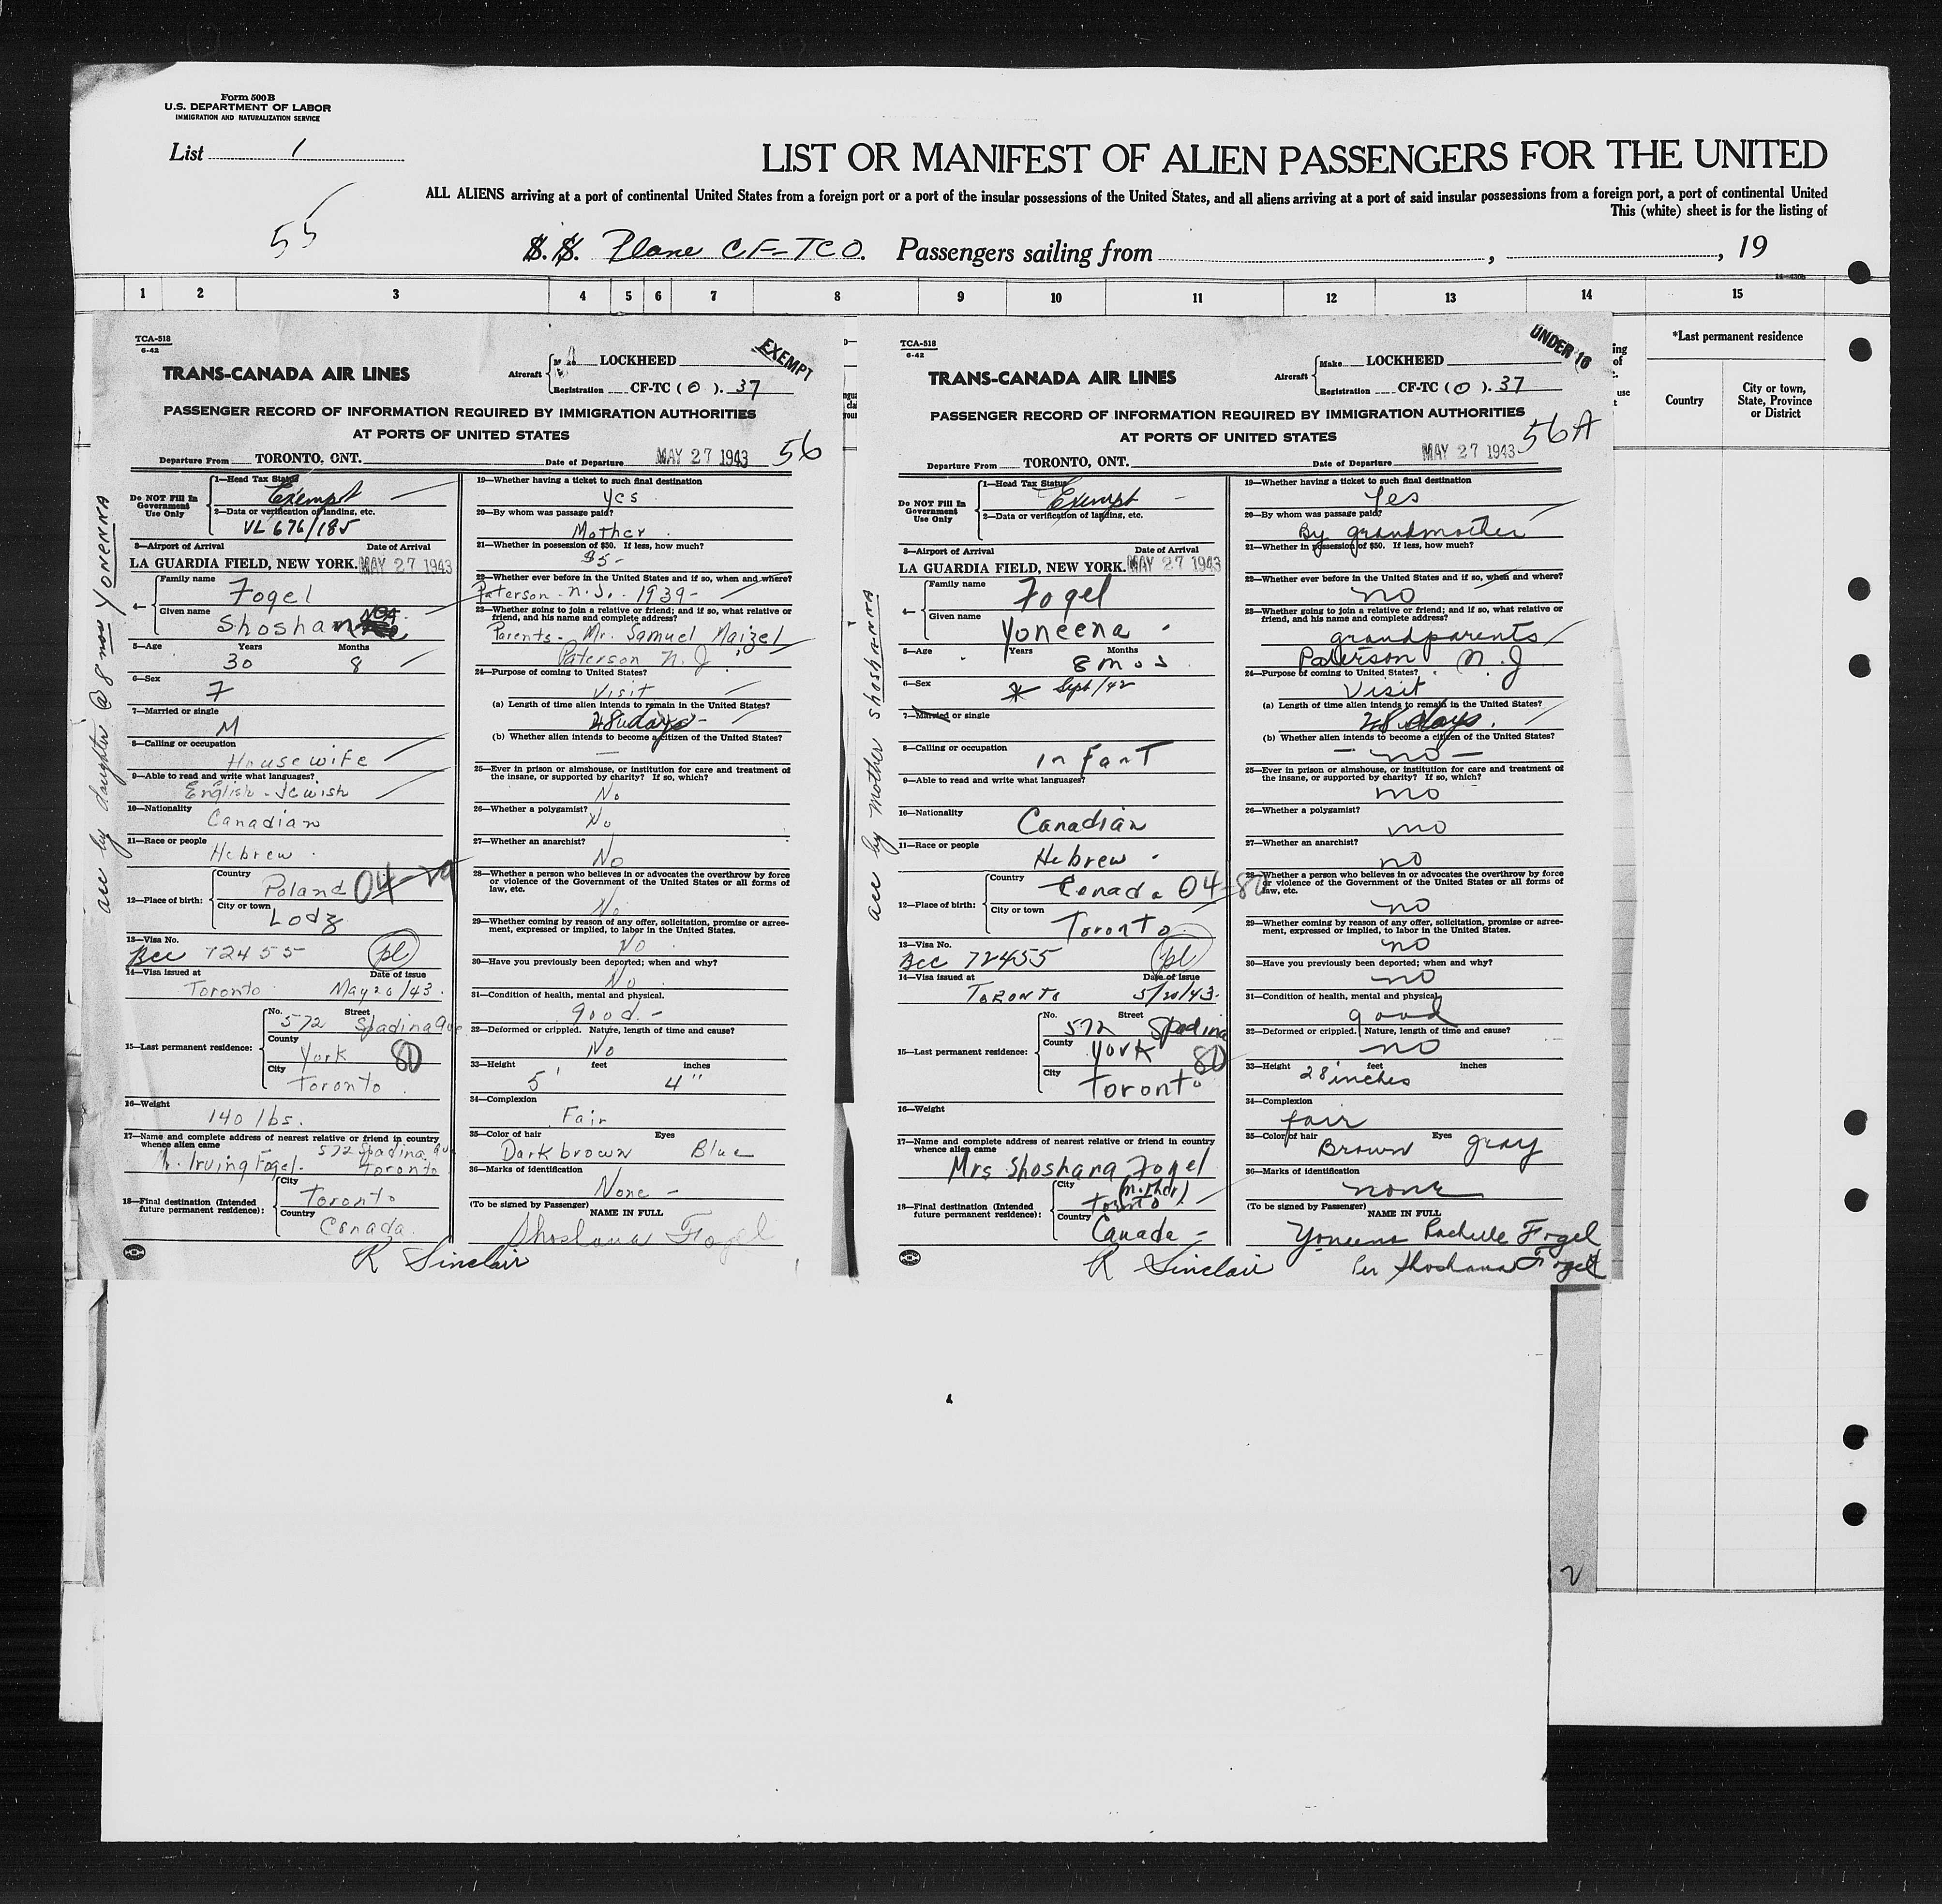 Form 500B
U.S. DEPARTMENT OF LABOR
IMMIGRATION AND NATURALIZATION SERVICE
List 1
LIST OR MANIFEST OF ALIEN PASSENGERS FOR THE UNITED
ALL ALIENS arriving at a port of continental United States from a foreign port or a port of the insular possessions of the United States, and all aliens arriving at a port of said insular possessions from a foreign port, a port of continental United
This (white) sheet is for the listing of
55
S.S. Plane CF-TCO. Passengers sailing from , , 19
1 2 3 4 5 6 7 8 9 10 11 12 13 14 15
*Last permanent residence
Country
City or town, State, Province or District
TCA-518
6-42
EXEMPT
TRANS-CANADA AIR LINES
Aircraft LOCKHEED
Registration CF-TC (O). 37
PASSENGER RECORD OF INFORMATION REQUIRED BY IMMIGRATION AUTHORITIES
AT PORTS OF UNITED STATES
56
Departure From TORONTO, ONT. Date of Departure MAY 27 1943
acc by daughter @ 8 mos YONENNA
Do NOT Fill In Government Use Only
1—Head Tax Status
Exempt
2—Data or verification of landing, etc.
VL 676/185
3—Airport of Arrival Date of Arrival
LA GUARDIA FIELD, NEW YORK. MAY 27 1943
4— Family name
Fogel
Given name
Shoshanna
5—Age Years Months
30 8
6—Sex
F
7—Married or single
M
8—Calling or occupation
Housewife
9—Able to read and write what languages?
English - Jewish
10—Nationality
Canadian
11—Race or people
Hebrew
12—Place of birth: Country
Poland 04
City or town
Lodz
13—Visa No.
Bcc 72455 pl
14—Visa issued at Date of issue
Toronto May 20/43.
15—Last permanent residence: No. Street
572 Spadina Ave
County
York 80
City
Toronto
16—Weight
140 lbs.
17—Name and complete address of nearest relative or friend in country whence alien came
572 Spadina Ave
Irving Fogel. Toronto
18—Final destination (Intended future permanent residence): City
Toronto
Country
Canada.
19—Whether having a ticket to such final destination
yes
20—By whom was passage paid?
Mother
21—Whether in possession of $50. If less, how much?
22—Whether ever before in the United States and if so, when and where?
Paterson - N.J. - 1939 -
23—Whether going to join a relative or friend; and if so, what relative or friend, and his name and complete address?
Parents - Mr. Samuel Maizel
Paterson N.J.
24—Purpose of coming to United States?
Visit
(a) Length of time alien intends to remain in the United States?
28 days -
(b) Whether alien intends to become a citizen of the United States?
—
25—Ever in prison or almshouse, or institution for care and treatment of the insane, or supported by charity? If so, which?
No
26—Whether a polygamist?
No
27—Whether an anarchist?
No
28—Whether a person who believes in or advocates the overthrow by force or violence of the Government of the United States or all forms of law, etc.
No
29—Whether coming by reason of any offer, solicitation, promise or agreement, expressed or implied, to labor in the United States.
No
30—Have you previously been deported; when and why?
No
31—Condition of health, mental and physical.
good -
32—Deformed or crippled. Nature, length of time and cause?
No
33—Height feet inches
5' 4"
34—Complexion
Fair
35—Color of hair Eyes
Dark brown Blue
36—Marks of identification
None -
(To be signed by Passenger) NAME IN FULL
Shoshana Fogel
R Sinclair
TCA-518
6-42
UNDER 16
TRANS-CANADA AIR LINES
Aircraft Make LOCKHEED
Registration CF-TC (O). 37
PASSENGER RECORD OF INFORMATION REQUIRED BY IMMIGRATION AUTHORITIES
AT PORTS OF UNITED STATES
56A
Departure From TORONTO, ONT. Date of Departure MAY 27 1943
acc by mother SHOSHANNA
Do NOT Fill In Government Use Only
1—Head Tax Status
Exempt
2—Data or verification of landing, etc.
3—Airport of Arrival Date of Arrival
LA GUARDIA FIELD, NEW YORK. MAY 27 1943
4— Family name
Fogel
Given name
Yoneena
5—Age Years Months
8 mos
6—Sex
Sept/42
7—Married or single
8—Calling or occupation
infant
9—Able to read and write what languages?
10—Nationality
Canadian
11—Race or people
Hebrew
12—Place of birth: Country
Canada 04-80
City or town
Toronto
13—Visa No.
Bcc 72455 pl
14—Visa issued at Date of issue
TORONTO 5/20/43.
15—Last permanent residence: No. Street
572 Spadina
County
York 80
City
Toronto
16—Weight
17—Name and complete address of nearest relative or friend in country whence alien came
Mrs Shoshana Fogel
(mother)
18—Final destination (Intended future permanent residence): City
Toronto
Country
Canada -
19—Whether having a ticket to such final destination
Yes
20—By whom was passage paid?
By grandmother
21—Whether in possession of $50. If less, how much?
22—Whether ever before in the United States and if so, when and where?
no
23—Whether going to join a relative or friend; and if so, what relative or friend, and his name and complete address?
grandparents
Paterson N.J
24—Purpose of coming to United States?
Visit
(a) Length of time alien intends to remain in the United States?
28 days.
(b) Whether alien intends to become a citizen of the United States?
— no —
25—Ever in prison or almshouse, or institution for care and treatment of the insane, or supported by charity? If so, which?
no
26—Whether a polygamist?
no
27—Whether an anarchist?
no
28—Whether a person who believes in or advocates the overthrow by force or violence of the Government of the United States or all forms of law, etc.
no
29—Whether coming by reason of any offer, solicitation, promise or agreement, expressed or implied, to labor in the United States.
no
30—Have you previously been deported; when and why?
no
31—Condition of health, mental and physical
good
32—Deformed or crippled. Nature, length of time and cause?
no
33—Height feet inches
28 inches
34—Complexion
fair
35—Color of hair Eyes
Brown gray
36—Marks of identification
none
(To be signed by Passenger) NAME IN FULL
Yoneena Rachelle Fogel
Per Shoshana Fogel
R Sinclair
2